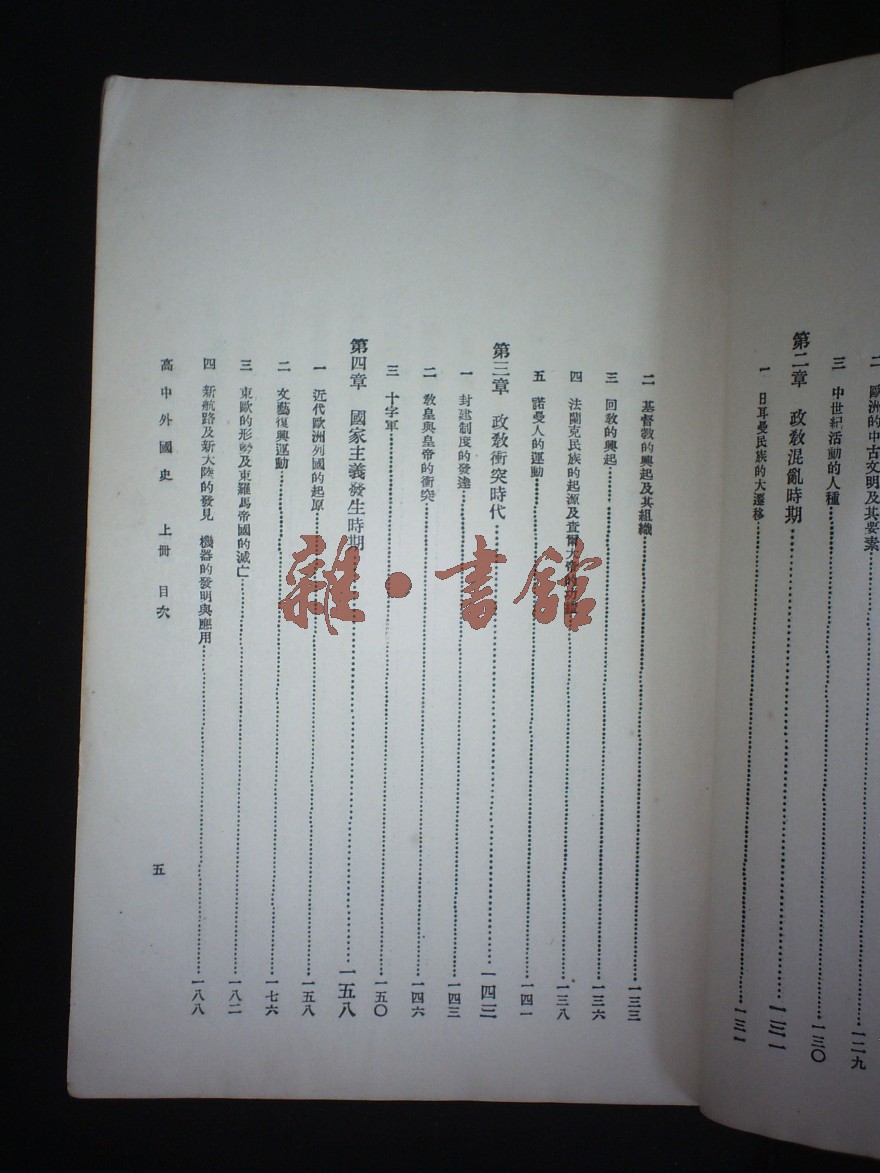 二　歐洲的中古文明及其要素……一二九
三　中世紀活動的人種……一三〇
第二章　政教混亂時期……一三一
一　日耳曼民族的大遷移……一三一
二　基督教的興起及其組織……一三三
三　回教的興起……一三六
四　法蘭克民族的起源及查爾大帝的功……一三八
五　諾曼人的運動……一四一
第三章　政教衝突時代……一四三
一　封建制度的發達……一四三
二　教皇與皇帝的衝突……一四六
三　十字軍……一五〇
第四章　國家主義發生時期……一五八
一　近代歐洲列國的起原……一五八
二　文藝復興運動……一七六
三　東歐的形勢及東羅馬帝國的滅亡……一八二
四　新航路及新大陸的發見　機器的發明與應用……一八八
高中外國史　上冊　目次　五
雜·書館